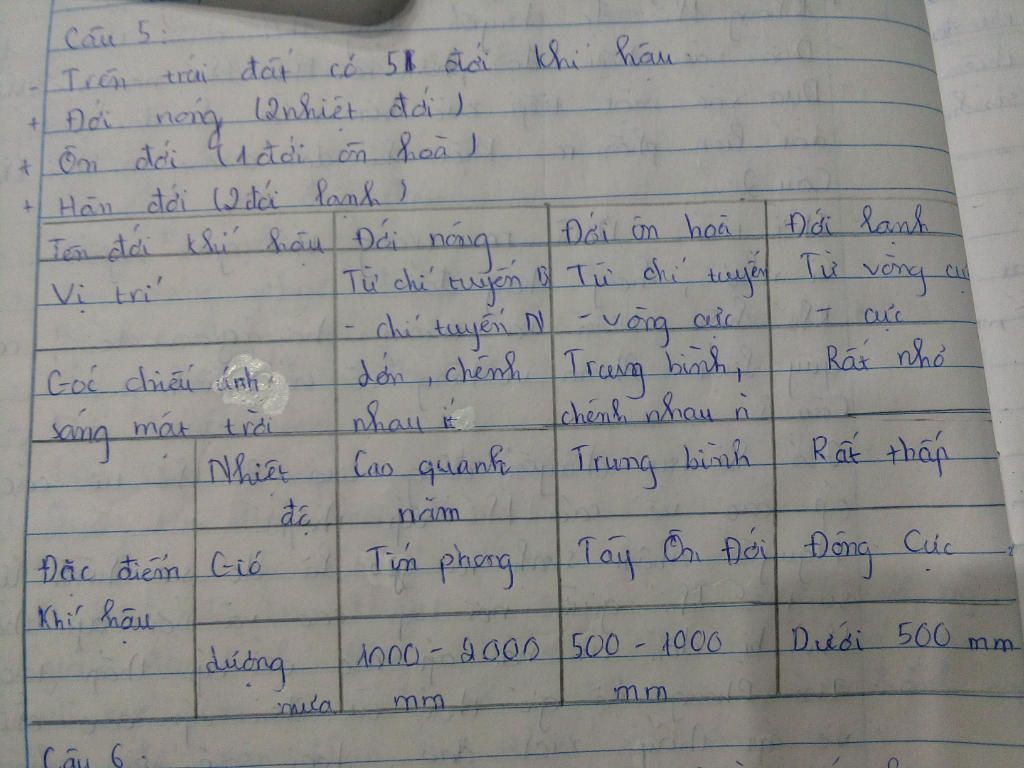 Câu 5:
- Trên trái đất có 5 đới khí hậu
+ Đới nóng (2 nhiệt đới)
+ Ôn đới (1 đới ôn hoà)
+ Hàn đới (2 đới lạnh)
Tên đới khí hậu Đới nóng Đới ôn hoà Đới lạnh
Vị trí Từ chí tuyến B Từ chí tuyến Từ vòng
- chí tuyến N - vòng cực - cực
Góc chiếu ánh lớn, chênh Trung bình, Rất nhỏ
sáng mặt trời nhau ít chênh nhau n
Nhiệt Cao quanh Trung bình Rất thấp
độ năm
Đặc điểm Gió Tín phong Tây Ôn Đới Đông Cực
Khí hậu
lượng 1000 - 2000 500 - 1000 Dưới 500 mm
mưa mm mm
Câu 6: